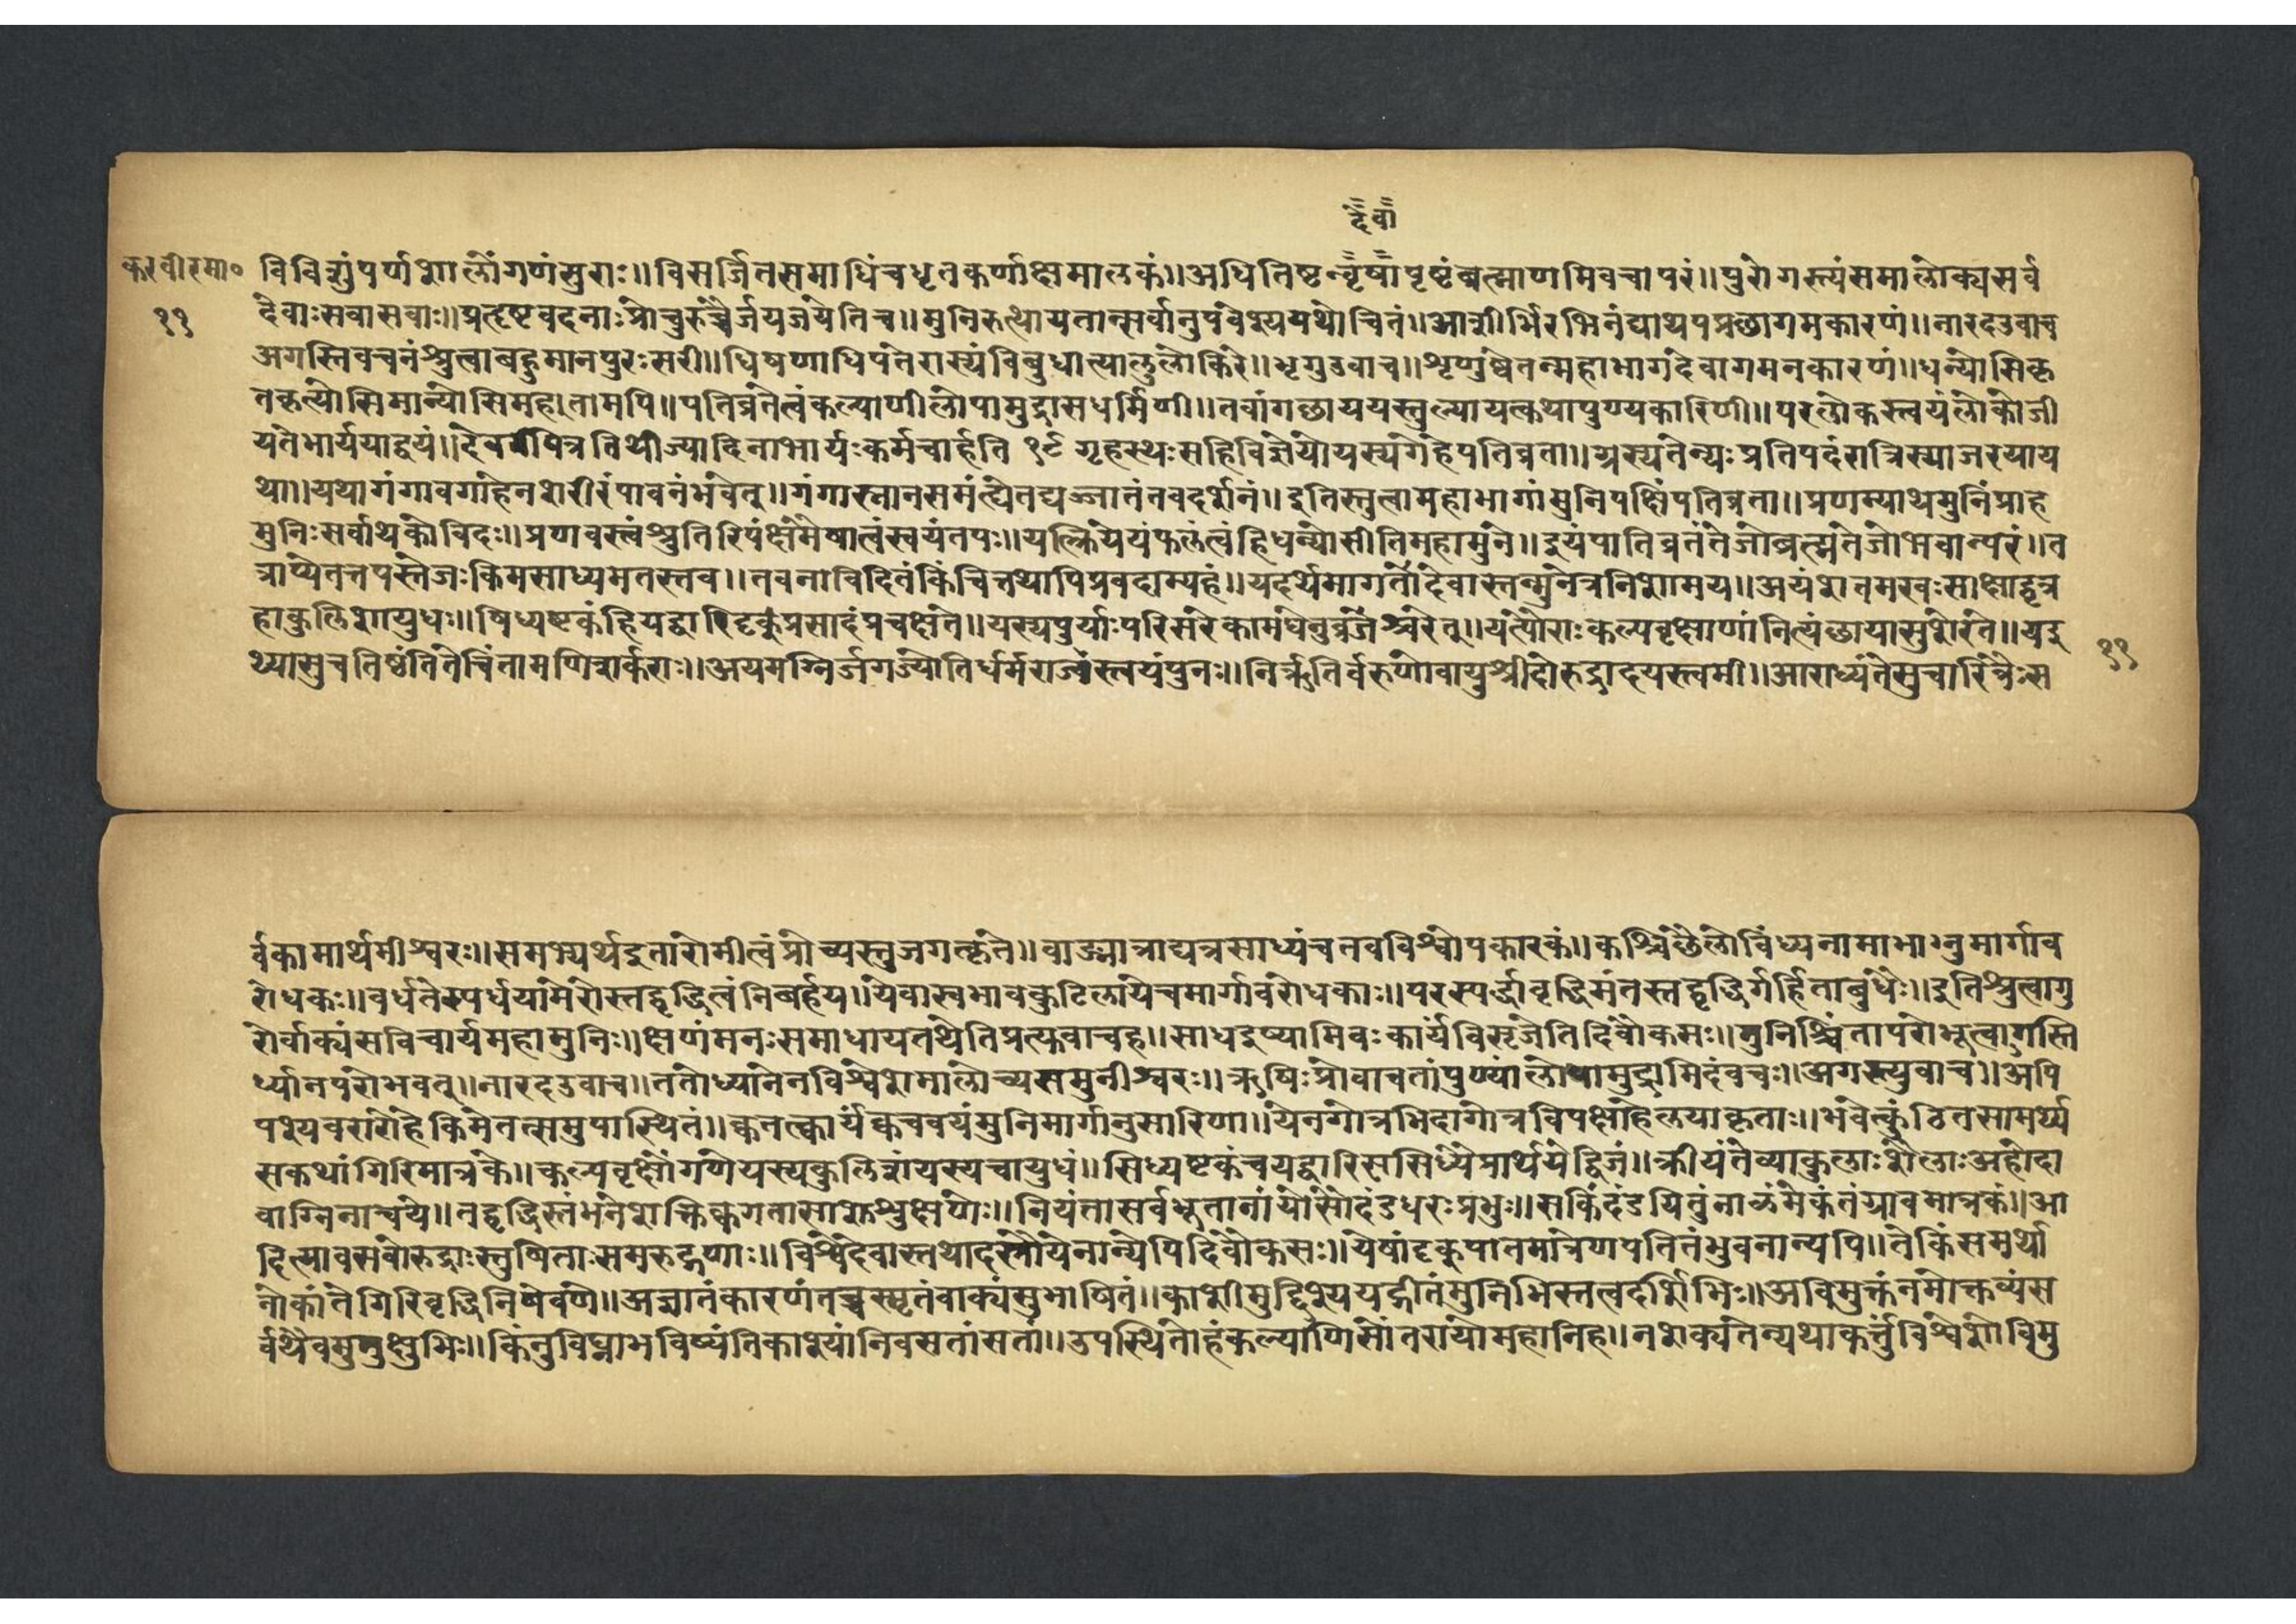 दैवा
करवीरमा० विविशुंपर्णशालांगणंसुराः॥विसर्जितसमाधिंचधृतकर्णाक्षमालकं॥अधितिष्टन्वृषीपृष्टंब्रह्माणमिवचापरं॥पुरोगस्त्यंसमालोक्यसर्वे
११ देवाःसवासवाः॥प्रहृष्टवदनाःप्रोचुरुच्चैर्जयजयेतिच॥मुनिरुत्थायतान्सर्वानुपवेश्ययथोचितं॥आशीर्भिरभिनंद्याथपप्रछागमकारणं॥नारदउवाच
अगस्तिवचनंश्रुत्वाबहुमानपुरःसरी॥धिषणाधिपतेरास्यंविबुधाव्यालुलोकिरे॥भृगुउवाच॥शृणुष्वेतन्महाभागदेवागमनकारणं॥धन्योसिकृ
तकृत्योसिमान्योसिमहतामपि॥पतिव्रतेत्वंकल्याणीलोपामुद्रासधर्मिणी॥तवांगछाययस्तुल्यायत्कथापुण्यकारिणी॥परलोकस्त्वयंलोकोजी
यतेभार्ययाद्वयं॥देवर्षपित्रतिथीज्यादिनाभार्यःकर्मचार्हति १९ गृहस्थःसहिविज्ञेयोयस्यगेहेपतिव्रता॥ग्रस्यतेन्यःप्रतिपदंरात्रिस्याजरयाय
था॥यथागंगावगाहेनशरीरंपावनंभवेत्॥गंगास्नानसमंत्वेतद्यज्जातंतवदर्शनं॥इतिस्तुत्वामहाभागांमुनिपत्निंपतिव्रता॥प्रणम्याथमुनिंप्राहे
मुनिःसर्वार्थकोविदः॥प्रणवस्त्वंश्रुतिरिपंक्षमैषात्वंस्वयंतपः॥यत्क्रियेयंफलंत्वंहिधन्योसीतिमहामुने॥इयंपातिव्रतंतेजोब्रह्मतेजोभवान्परं॥त
त्राप्येतत्तपस्तेजःकिमसाध्यमतस्तव॥तवनाविदितंकिंचित्तथापिप्रवदाम्यहं॥यदर्थमागतादेवास्तन्मुनेत्रनिशामय॥अयंशतमखःसाक्षाद्वृत्र
हाकुलिशायुधः॥षिध्यष्टकंहियद्वारिदृक्प्रसादंप्रचक्षंते॥यस्यपुर्याःपरिसरेकामधेनुव्रजंश्चरेत्॥यत्पौराःकल्पवृक्षाणांनित्यंछायासुशेरते॥यदु ११
थ्यासुचतिष्ठंतितेचिंतामणिशर्कराः॥अयमग्निर्जगज्योतिर्धर्मराज्यंस्त्वयंपुनः॥निर्ऋतिर्वरुणोवायुश्रीदोरुद्रादयस्त्वमी॥आराध्यंतेसुचारित्रैःस
र्वकामार्थमीश्वरः॥समभ्यर्थइतारोमीत्वंप्रोच्यस्तुजगत्कृते॥वाङ्मात्राद्यत्रसाध्यंचतवविश्वोपकारकं॥कश्चिछैलोविंध्यनामाभानुमार्गाव
रोधकः॥वर्धतेस्पर्धयामेरोस्तद्वृद्धिंत्वंनिबर्हय॥येवास्वभावकुटिलायेचमार्गावरोधकाः॥परस्पर्द्धावृद्धिमंतस्तद्वृद्धिर्गर्हिताबुधैः॥इतिश्रुत्वागु
रोर्वाक्यंसविचार्यमहामुनिः॥क्षणंमनःसमाधायतथेतिप्रत्युवाचह॥साधइष्यामिवःकार्यंविसृजेतिदिवौकसः॥मुनिश्चिंतापरोभूत्वागस्ति
र्ध्यानपरोभवत्॥नारदउवाच॥ततोध्यानेनविश्वेशमालोच्यसमुनीश्वरः॥ऋषिःप्रोवाचतांपुण्यांलोपामुद्रामिदंवचः॥अगस्त्युवाच॥अपि
पश्यवरारोहेकिमेतत्समुपास्थितं॥क्वतत्कार्यंक्वचवयंमुनिमार्गानुसारिणा॥येनगोत्रभिदागोत्रविपक्षाहेलयाकृताः॥भवेत्कुंठितसामर्थ्य
सकथांगिरिमात्रके॥कल्पवृक्षोंगणेयस्यकुलिशंयस्यचायुधं॥सिध्यष्टकंचयद्वारिससिध्यैप्रार्थयेद्विजं॥क्रीयंतेव्याकुलाःशैलाःअहोदा
वाग्निनाश्चये॥तद्वृद्धिस्तंभनेशक्तिःक्वगतासाशुश्रुक्षणेः॥नियंतासर्वभूतानांयोसौदंडधरःप्रभुः॥सकिंदंडयितुंनाळंमेकंतंग्रावमात्रकं॥आ
दित्यावसवोरुद्राःस्तुषिताःसमरुद्गणाः॥विश्वेदेवास्तथादस्त्रौयेनान्येपिदिवौकसः॥येषांदृक्पातमात्रेणपतितंभुवनान्यपि॥तेकिंसमर्थो
नोकांतेगिरिवृद्धिनिषेवणे॥अज्ञातंकारणंतच्चस्मृतंवाक्यंसुभाषितं॥काशीमुद्दिश्ययद्गीतंमुनिभिस्तत्वदर्शिभिः॥अविमुक्तंनमोक्तव्यंस
र्वथैवमुमुक्षुभिः॥किंनुविघ्नाभविष्यंतिकाश्यांनिवसतांसतां॥उपस्थितोहंकल्याणिसोंतरायोमहानिह॥नशक्यंतेन्यथाकर्त्तुंविश्वेशोविमु